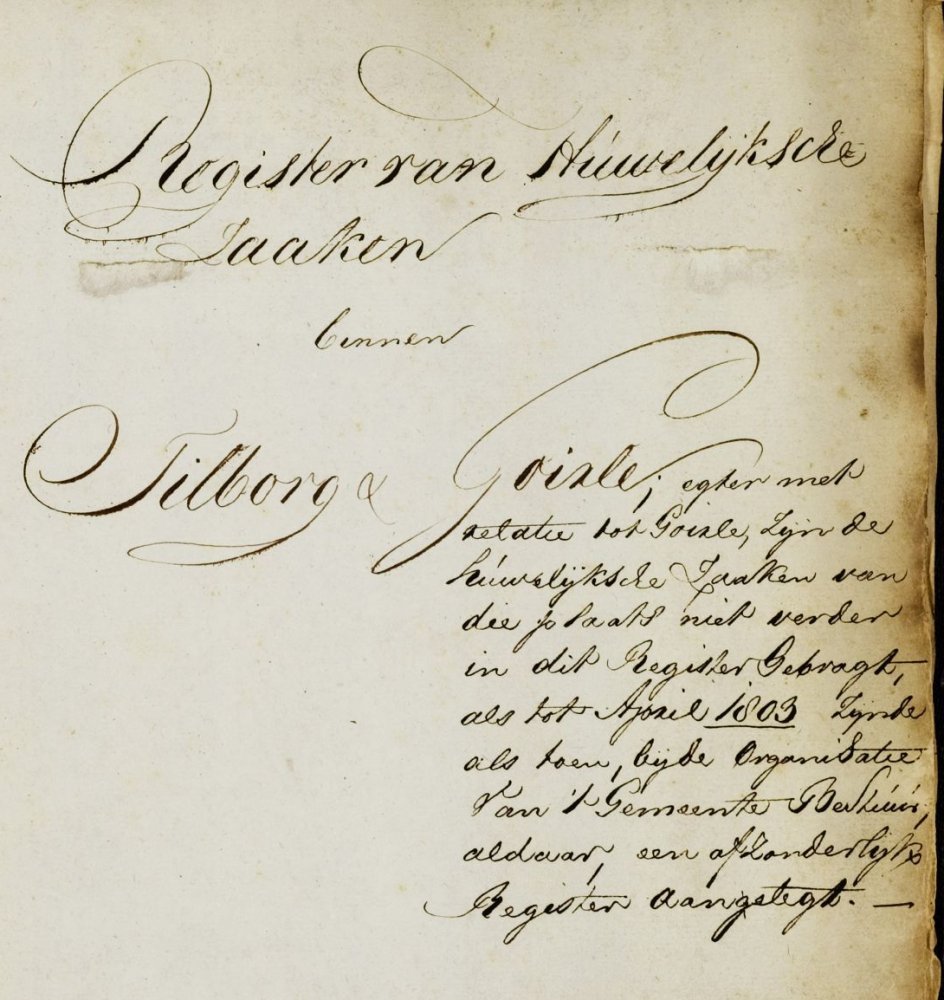 Register van Húwelijksche
Zaaken
binnen
Tilborg & Goirle; egter met
relatie tot Goirle, zijn de
húwelijksche Zaaken van
die plaats niet verder
in dit Register Gebragt,
als tot April 1803 zijnde
als toen, bij de Organisatie
van 't Gemeente Bestúúr,
aldaar, een afzonderlijk
Register aangelegt. —